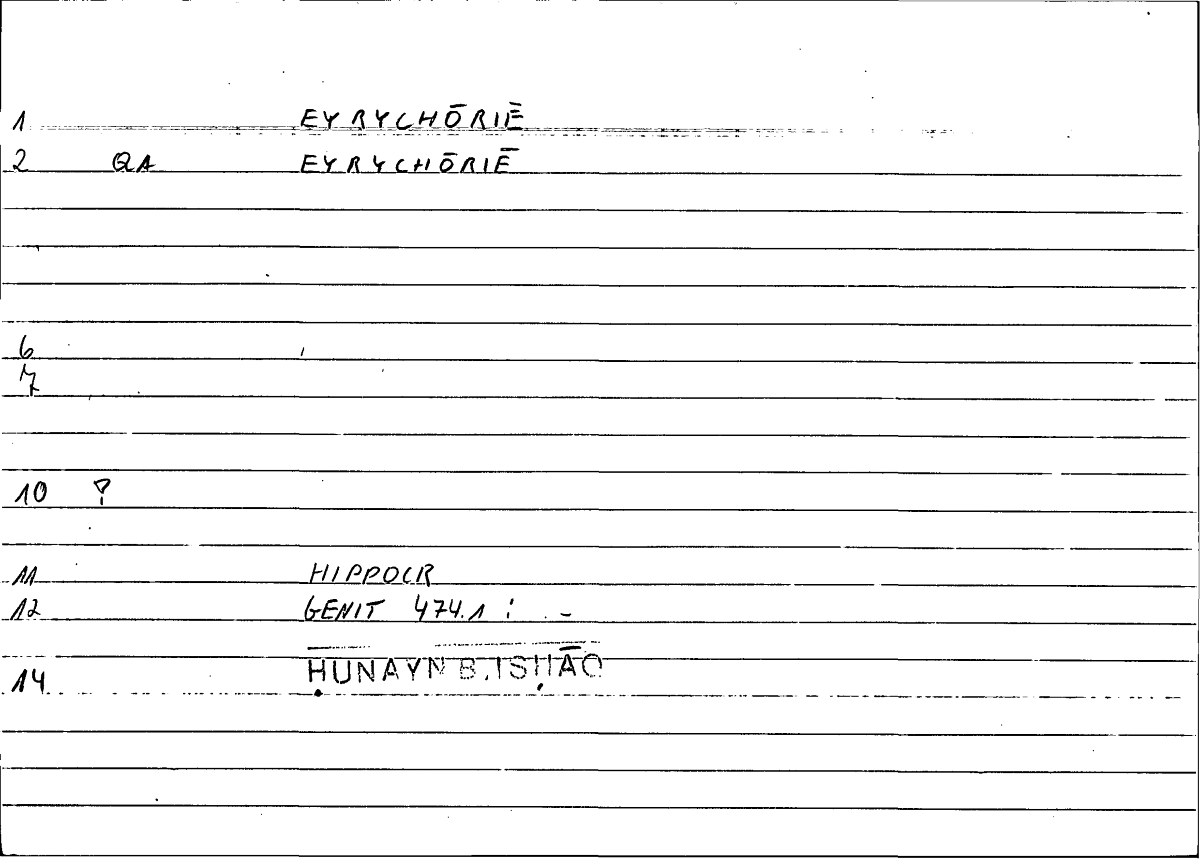 1 EYRYCHŌRIĒ
2 QA EYRYCHŌRIĒ
6
7
10 ?
11 HIPPOCR
12 GENIT 474.1 : -
14 ḤUNAYN B. ISḤĀQ